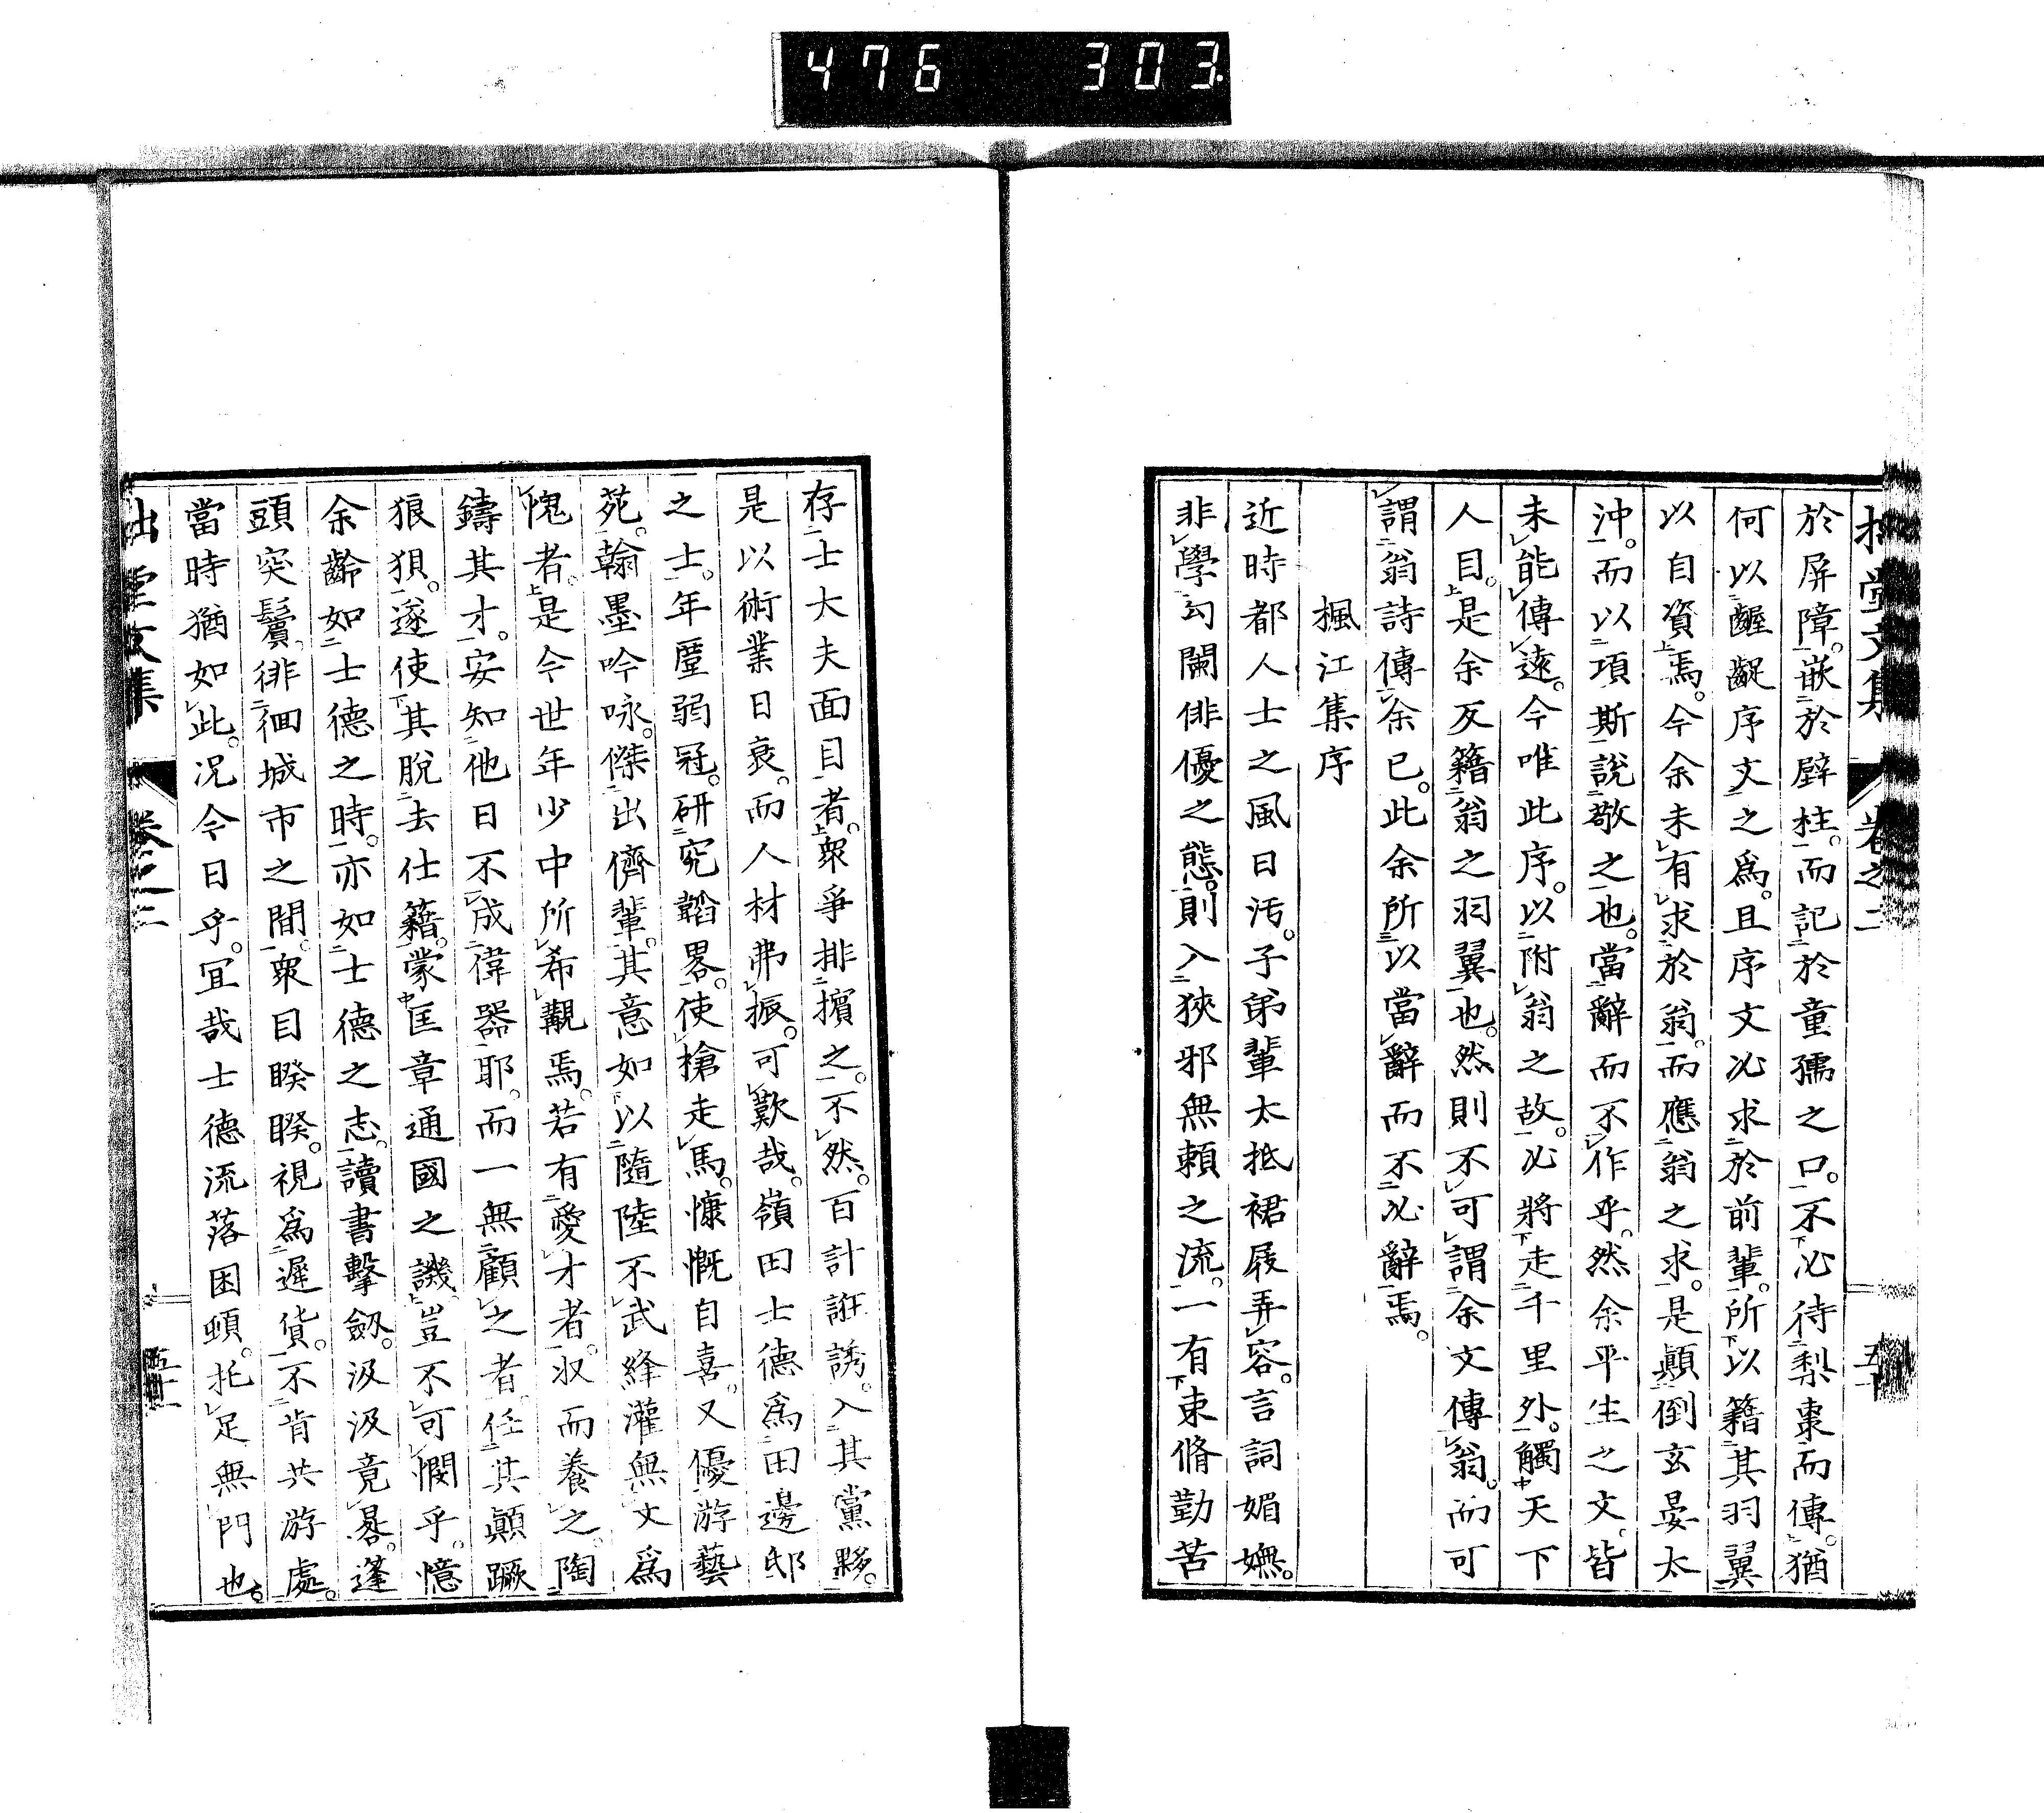 476 303
拙堂文集 卷之二 五十
於屏障。嵌於壁柱。而記於童孺之口。不必待梨棗而傳。猶
何以齷齪序文之爲。且序文必求於前輩。所以籍其羽翼
以自資焉。今余未有求於翁。而應翁之求。是顛倒玄晏太
沖。而以項斯說敬之也。當辭而不作乎。然余平生之文。皆
未能傳遠。今唯此序。以附翁之故。必將走千里外。觸天下
人目。是余反籍翁之羽翼也。然則不可謂余文傳翁。而可
謂翁詩傳余已。此余所以當辭而不必辭焉。
楓江集序
近時都人士之風日污。子弟輩太抵裙屐弄容。言詞媚嫵。
非學勾闌俳優之態。則入狹邪無賴之流。一有束脩勤苦
存士大夫面目者。衆爭排擯之。不然。百計誑誘。入其黨夥。
是以術業日衰。而人材弗振。可歎哉。嶺田士德爲田邊邸
之士。年廑弱冠。研究韜畧。使槍走馬。慷慨自喜。又優游藝
苑。翰墨吟咏。傑出儕輩。其意如以隨陸不武絳灌無文爲
愧者。是今世年少中所希覯焉。若有愛才者。收而養之。陶
鑄其才。安知他日不成偉器耶。而一無顧之者。任其顛蹶
狼狽。遂使其脫去仕籍。蒙匡章通國之譏。豈不可憫乎。憶
余齡如士德之時。亦如士德之志。讀書擊劔。汲汲竟晷。蓬
頭突鬢。徘徊城市之間。衆目睽睽。視爲遲貨。不肯共游處。
當時猶如此。况今日乎。宜哉士德流落困頓。托足無門也。
拙堂文集 卷之二 五十一